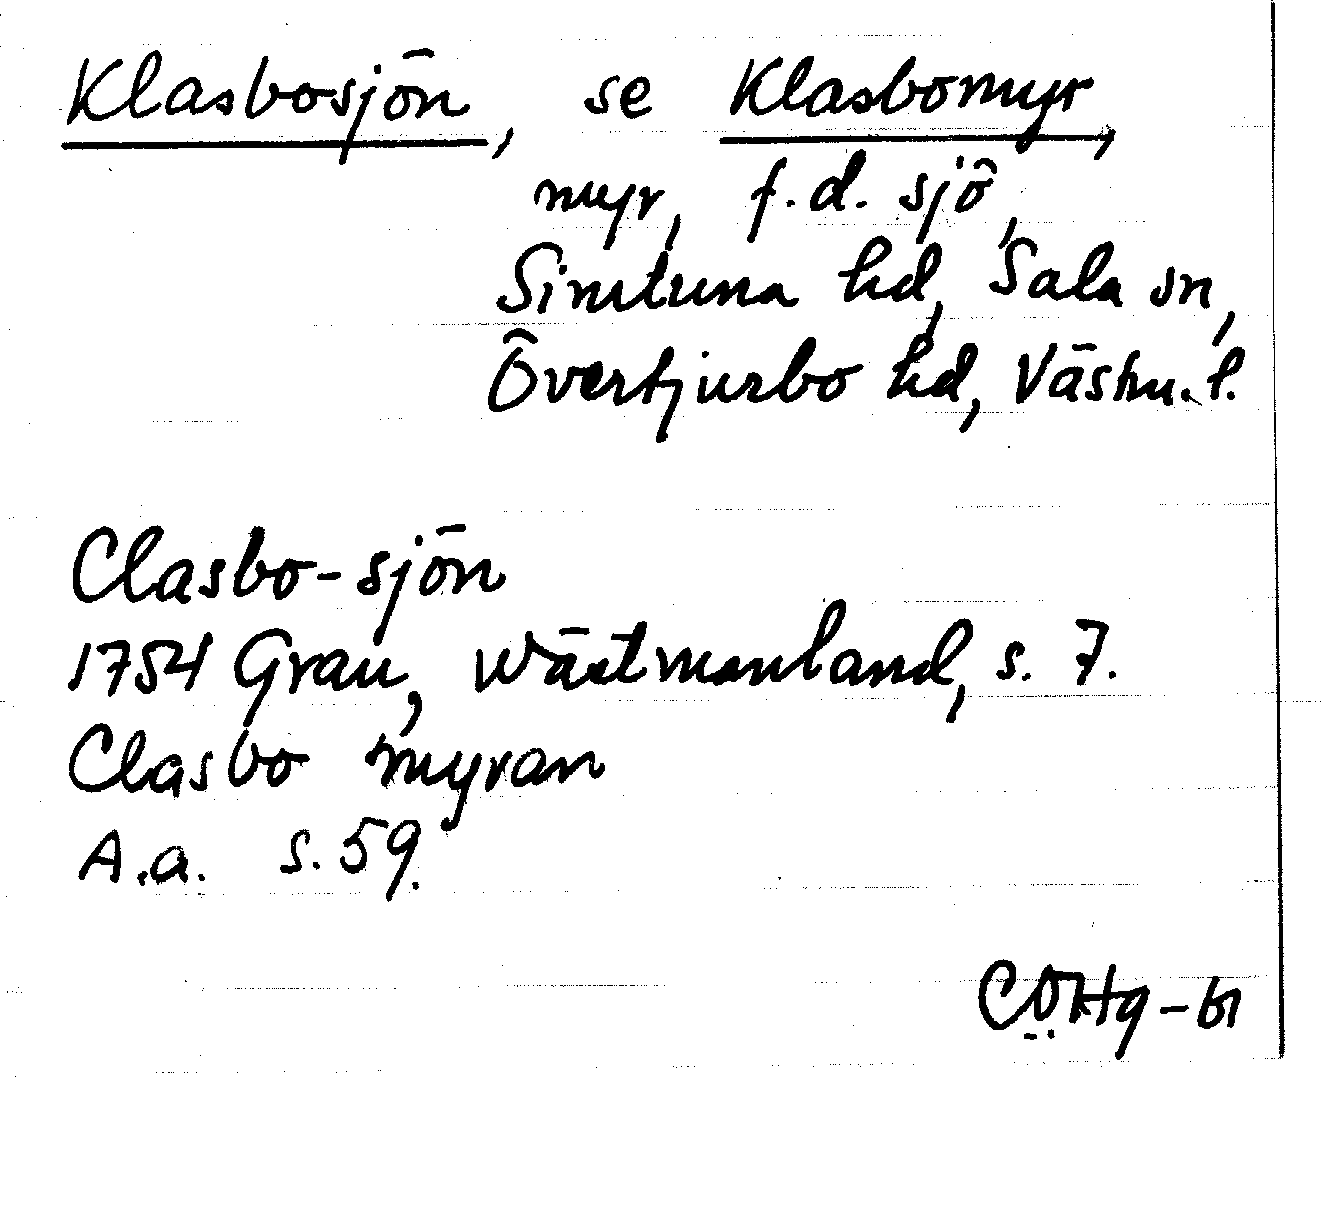 Klasbosjön, se Klasbomyr,
myr, f.d. sjö,
Simtuna hd, Sala sn,
Övertjurbo hd, Västm. l.
Clasbo-sjön
1754 Grau, Wästmanland, s. 7.
Clasbo myran
A.a. s. 59.